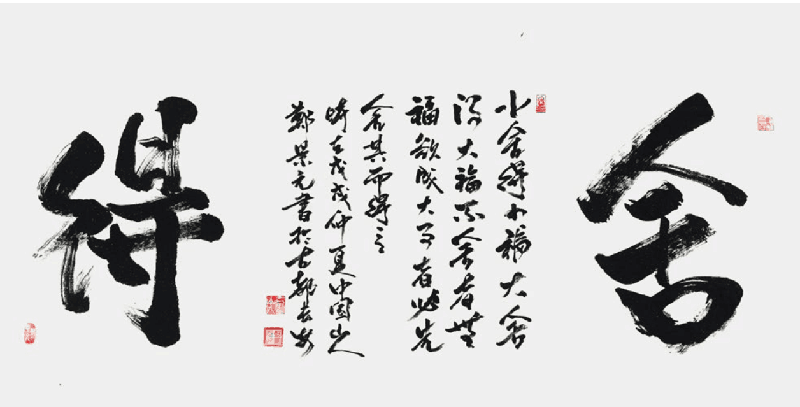 舍
小舍得小福大舍
得大福不舍者無
福欲成大事者必先
舍其而得之
時在戊戌仲夏中国山人
鄭景元書於古都長安
得